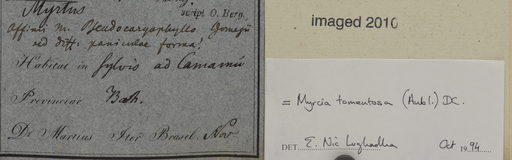 Myrtus
script. O. Berg.
affinis M. Pseudocaryophyllo Gomezii
sed diff: paniculae forma!
Habitat in Sylvis ad Camamú
Provinciae Bah.
Dr Martius Iter Brasil. Nov
imaged 2010
= Myrcia tomentosa (Aubl.) DC.
DET. E. Nic Lughadha Oct 1994